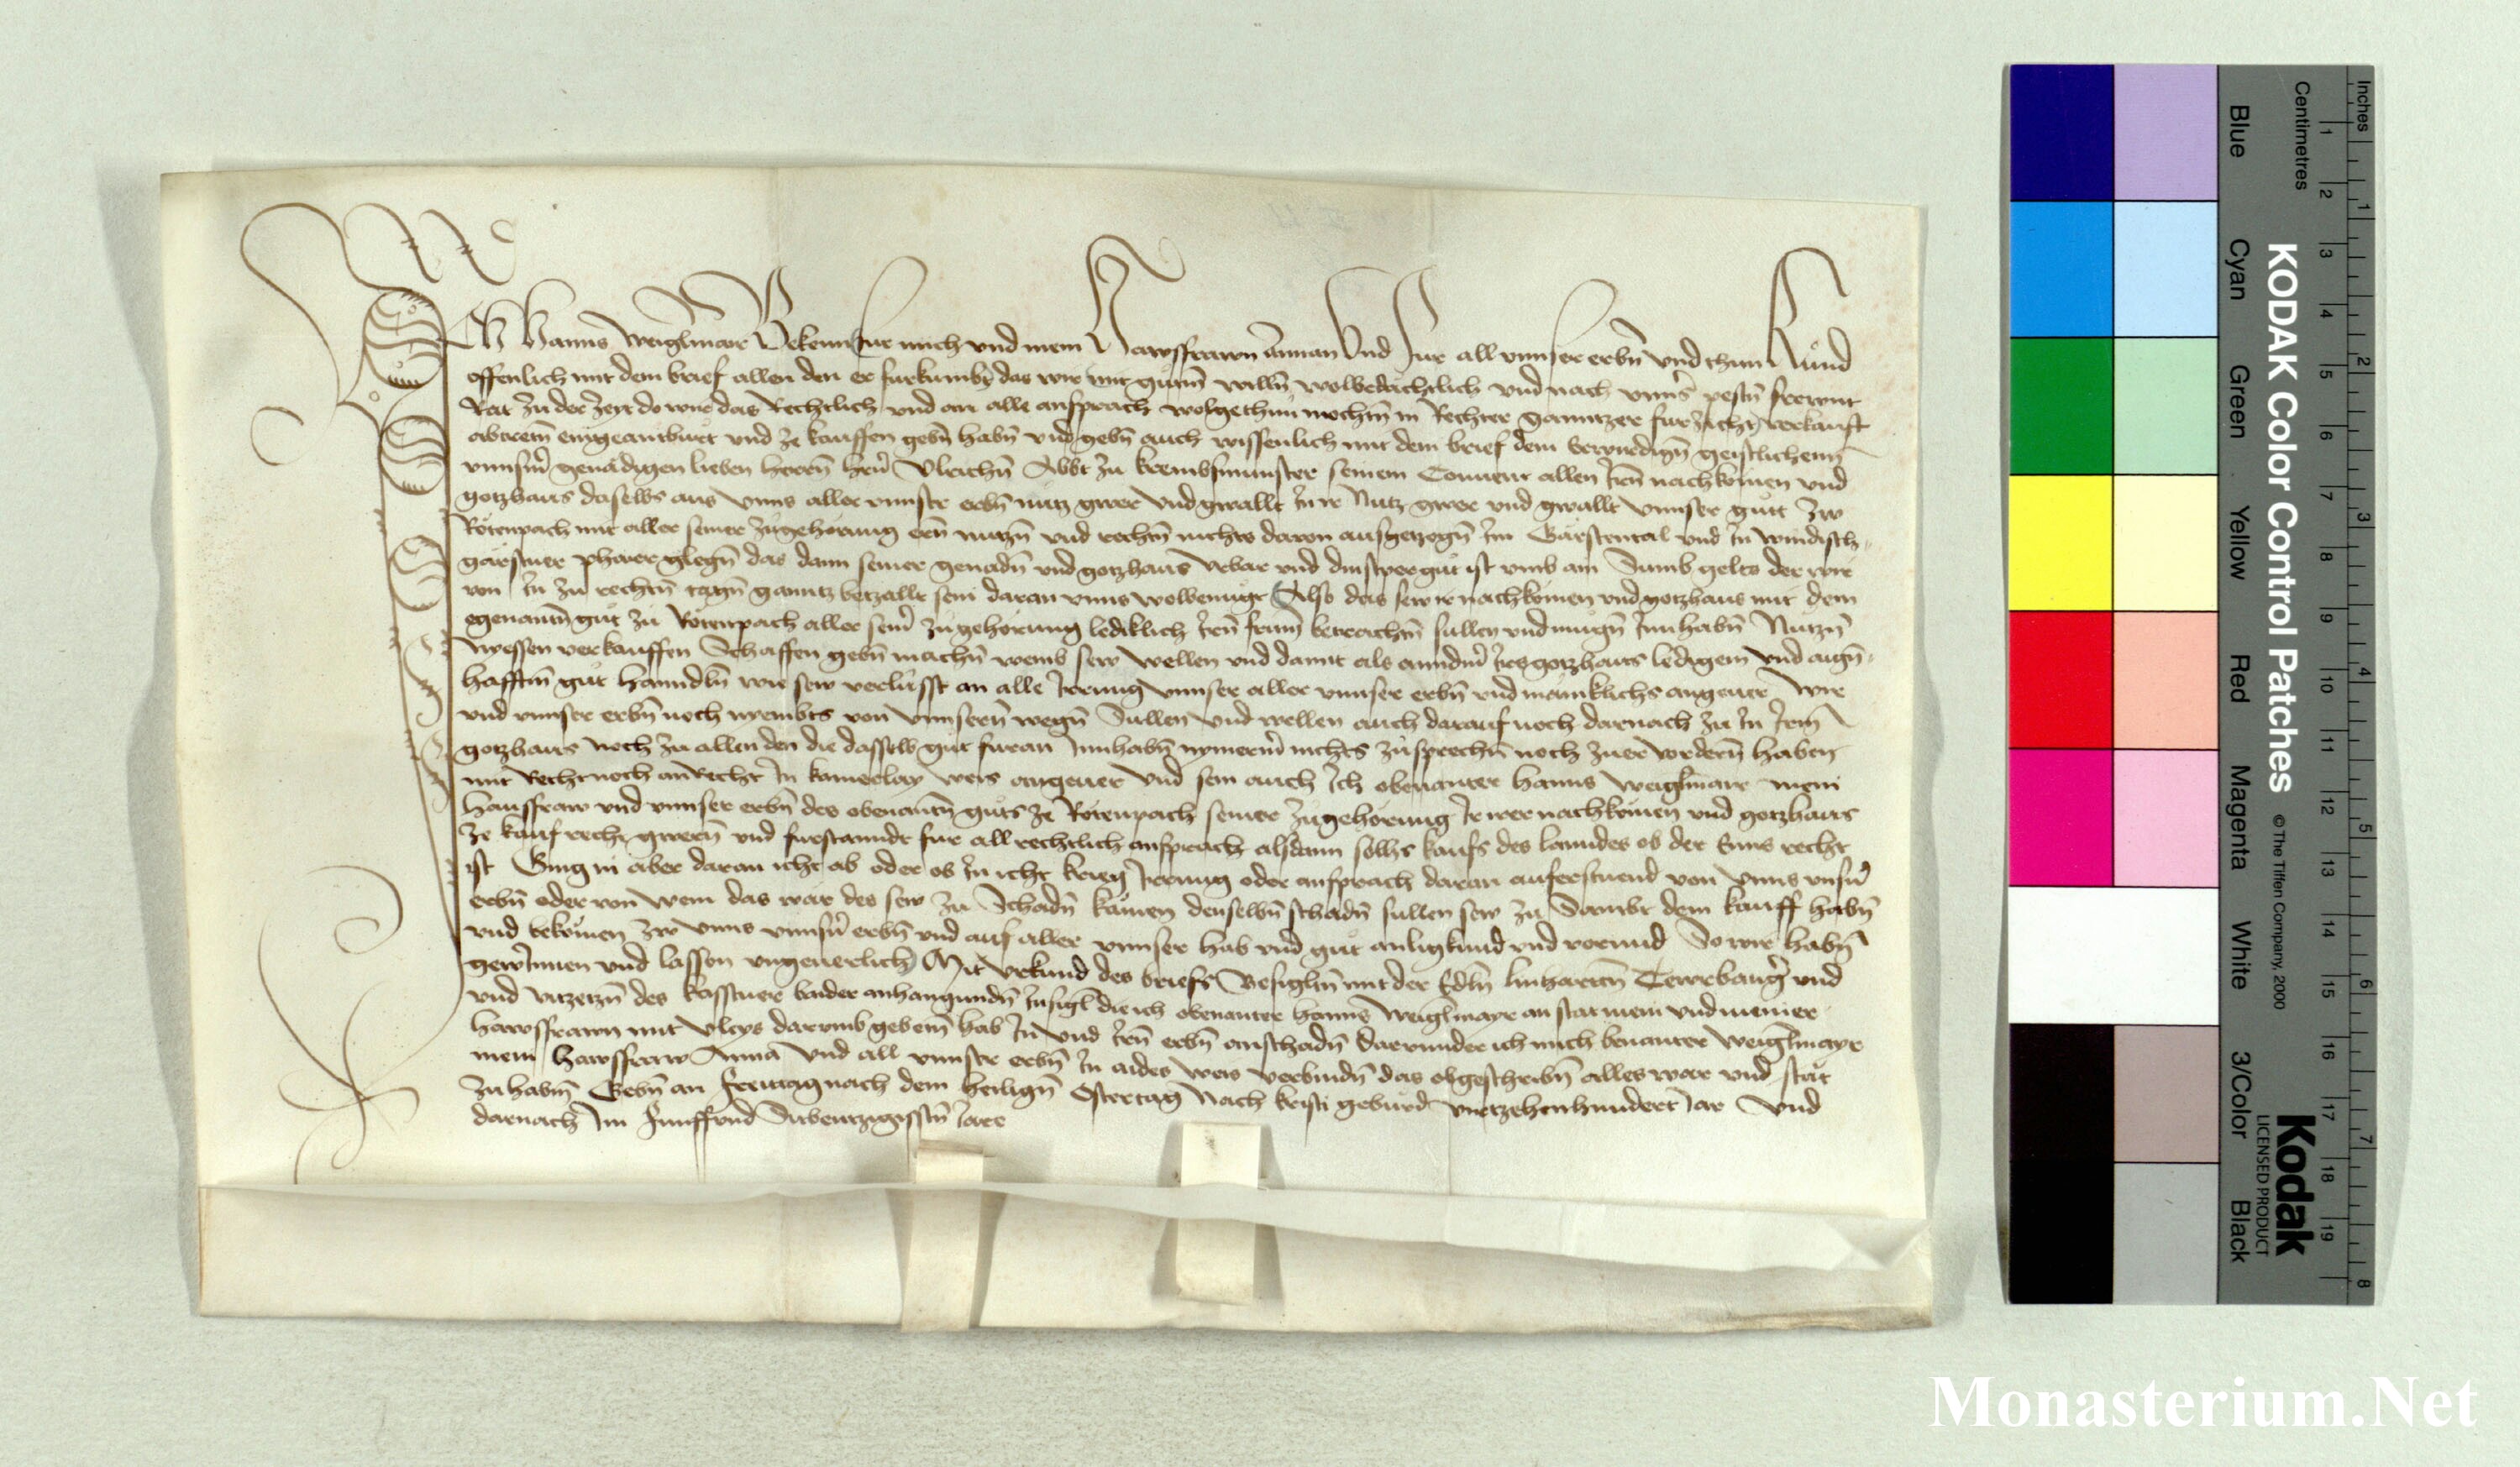 ICH Hanns Weiglmair Bekenn fur mich und mein Hawsfrawn Annan Und Fur all unnser erbn̄ Und thun Kund
offenlich mit dem brief allen den er furkumbt das wir mit gutm̄ willn̄ wolbedachtlich und nach unns̄ pestn̄ frewnt
Rat zu der zeyt do wir das Rechtlich und an alle ansprach wolgethun mochtn̄ in Rechter ganntzer furzicht verkauft
abtretn̄ eingeantburt und ze kauffen gebn̄ habn̄ und gebn̄ auch wissenlich mit dem brief dem berwirdign̄ geistlichenn
unnsm̄ genadigen lieben herrn̄ hern̄ Ulrichn̄ Abbt zu krembsmunster seinem Convent allen Irn̄ nachkomen und
gotzhaus daselbs aus unns aller unnser erbn̄ nutz gwer und gwallt In ir Nutz gwer und gwallt unnser gutt zw
Rotenpach mit aller seiner zugehorung ern̄ nutzn̄ und rechtn̄ nichts davon ausgetzogn̄ Im Garstental und In windisch
garstner pharr glegn̄ das dann seiner genadn̄ und gotzhaus Urbar und dinstper gut ist umb ain Sumb gelts der wir
von In zu rechtn̄ tagn̄ ganntz betzallt sein daran unns wolbenugt Also das sew ir nachkomen und gotzhaus mit dem
egenantn̄ gut zu Rotenpach aller seinr̄ zugehorung lediklich Irn̄ frum̄ betrachtn̄ sullen und mugn̄ Innhabn̄ Nutzn̄
Nyessen verkauffen Schaffen gebn̄ machn̄ wemb sew wellen und damit als anndm̄ Irs gotzhaus ledigem und aign̄
hafftm̄ gut hanndln̄ wie sew verlusst an alle Irrung unnser aller unnser erbn̄ und mäniklichs angever Wir
und unnser erbn̄ noch nyembts von unnsern̄ wegn̄ Sullen und wellen auch darauf noch darnach zu In Irm̄
gotzhaus noch zu allen den die dasselb gut furan Innhabn̄ nymerm̄ nichts zusprechn̄ noch zuervordern̄ haben
mit Recht noch anRecht In kainerlay weis angever Und sein auch Ich obenanter Hanns Weiglmair mein
Hausfraw und unnser erbn̄ des obenantn̄ guts ze Rotenpach seiner zugehorung Ir irer nachkomen und gotzhaus
ze kauf recht gwern̄ und furstanndt fur all rechtlich ansprach alsdann solhs kaufs des lanndes ob der Enns recht
ist Ging in aber daran icht ab oder ob In icht krieg Irrung oder ansprach daran auferstuend von unns unsn̄
erbn̄ oder von wem das wär des sew zu Schadn̄ kämen denselbn̄ schadn̄ sullen sew zu Sambt dem kauff habn̄
und bekomen zw unns unnsn̄ erbn̄ und auf aller unnser hab und gut anligkund und varund So wir habn̄
gewinnen und lassen ungeverlich Mit Urkund des briefs Besigltn̄ mit der Edln̄ Linhartn̄ Tewrbangr̄ und
und utzetzn̄ des Kasstner baider anhangundn̄ Insigl die ich obenanter Hanns Weiglmayr an stat mein und meiner
Hawsfrawn mit vleys darumb gebetn̄ hab In und Irn̄ erbn̄ anschadn̄ Darunder ich mich benanter Weiglmayr
mein Hawsfraw Anna und all unnser erbn̄ In aides weis verbindn̄ das obgeschribn̄ alles war und stat
zu habn̄ Gebn̄ an Freitag nach dem heilign̄ Ostertag Nach kristi geburd viertzehenhundert Jar Und
darnach Im Funffund Sibentzigistn̄ Jare
Blue
Cyan
Green
Yellow
Red
Magenta
White
3/Color
Black
KODAK Color Control Patches
© The Tiffen Company, 2000
Kodak
LICENSED PRODUCT
Centimetres
1 2 3 4 5 6 7 8 9 10 11 12 13 14 15 16 17 18 19
Inches
1 2 3 4 5 6 7 8
Monasterium.Net